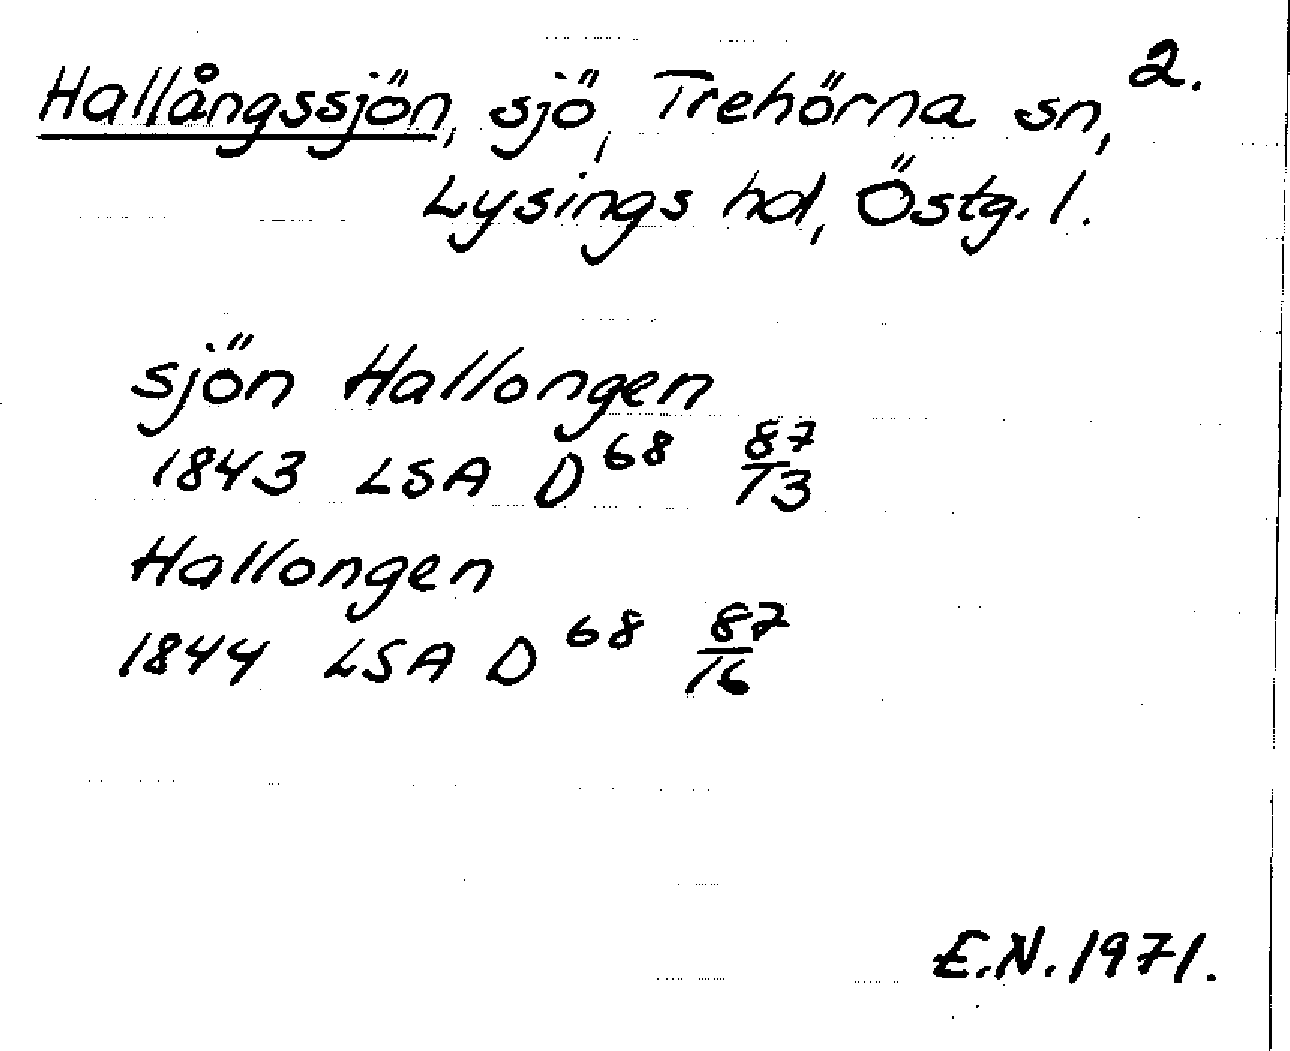 Hallångssjön, sjö, Trehörna sn, 2.
Lysings hd, Östg. l.
sjön Hallongen
1843 LSA D68 87/13
Hallongen
1844 LSA D68 87/16
E.N. 1971.